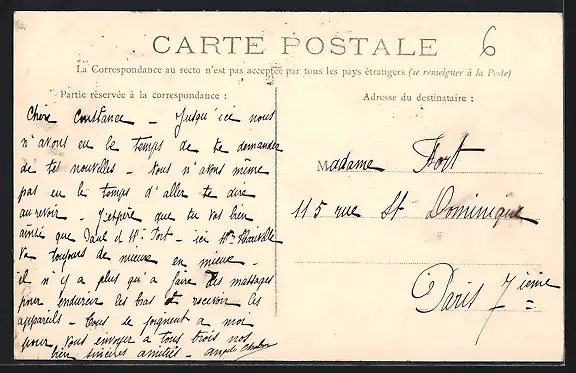 CARTE POSTALE
6
La Correspondance au recto n'est pas acceptée par tous les pays étrangers (se renseigner à la Poste)
Partie réservée à la correspondance :
Adresse du destinataire :
Chère Constance - Jusqu'ici nous
n'avons eu le temps de te demander
de tes nouvelles - Nous n'avons même
pas eu le temps d'aller te dire
au revoir - J'espère que tu vas bien
ainsi que Paul et Mr Fort - ici Mme
va toujours de mieux en mieux -
il n'y a plus qu'a faire des massages
pour endurcir les bras et recevoir les
appareils - Tous se joignent a moi
pour vous envoyer a tous trois nos
bien sincères amitiés -
Madame Fort
115 rue St Dominique
Paris 7ième